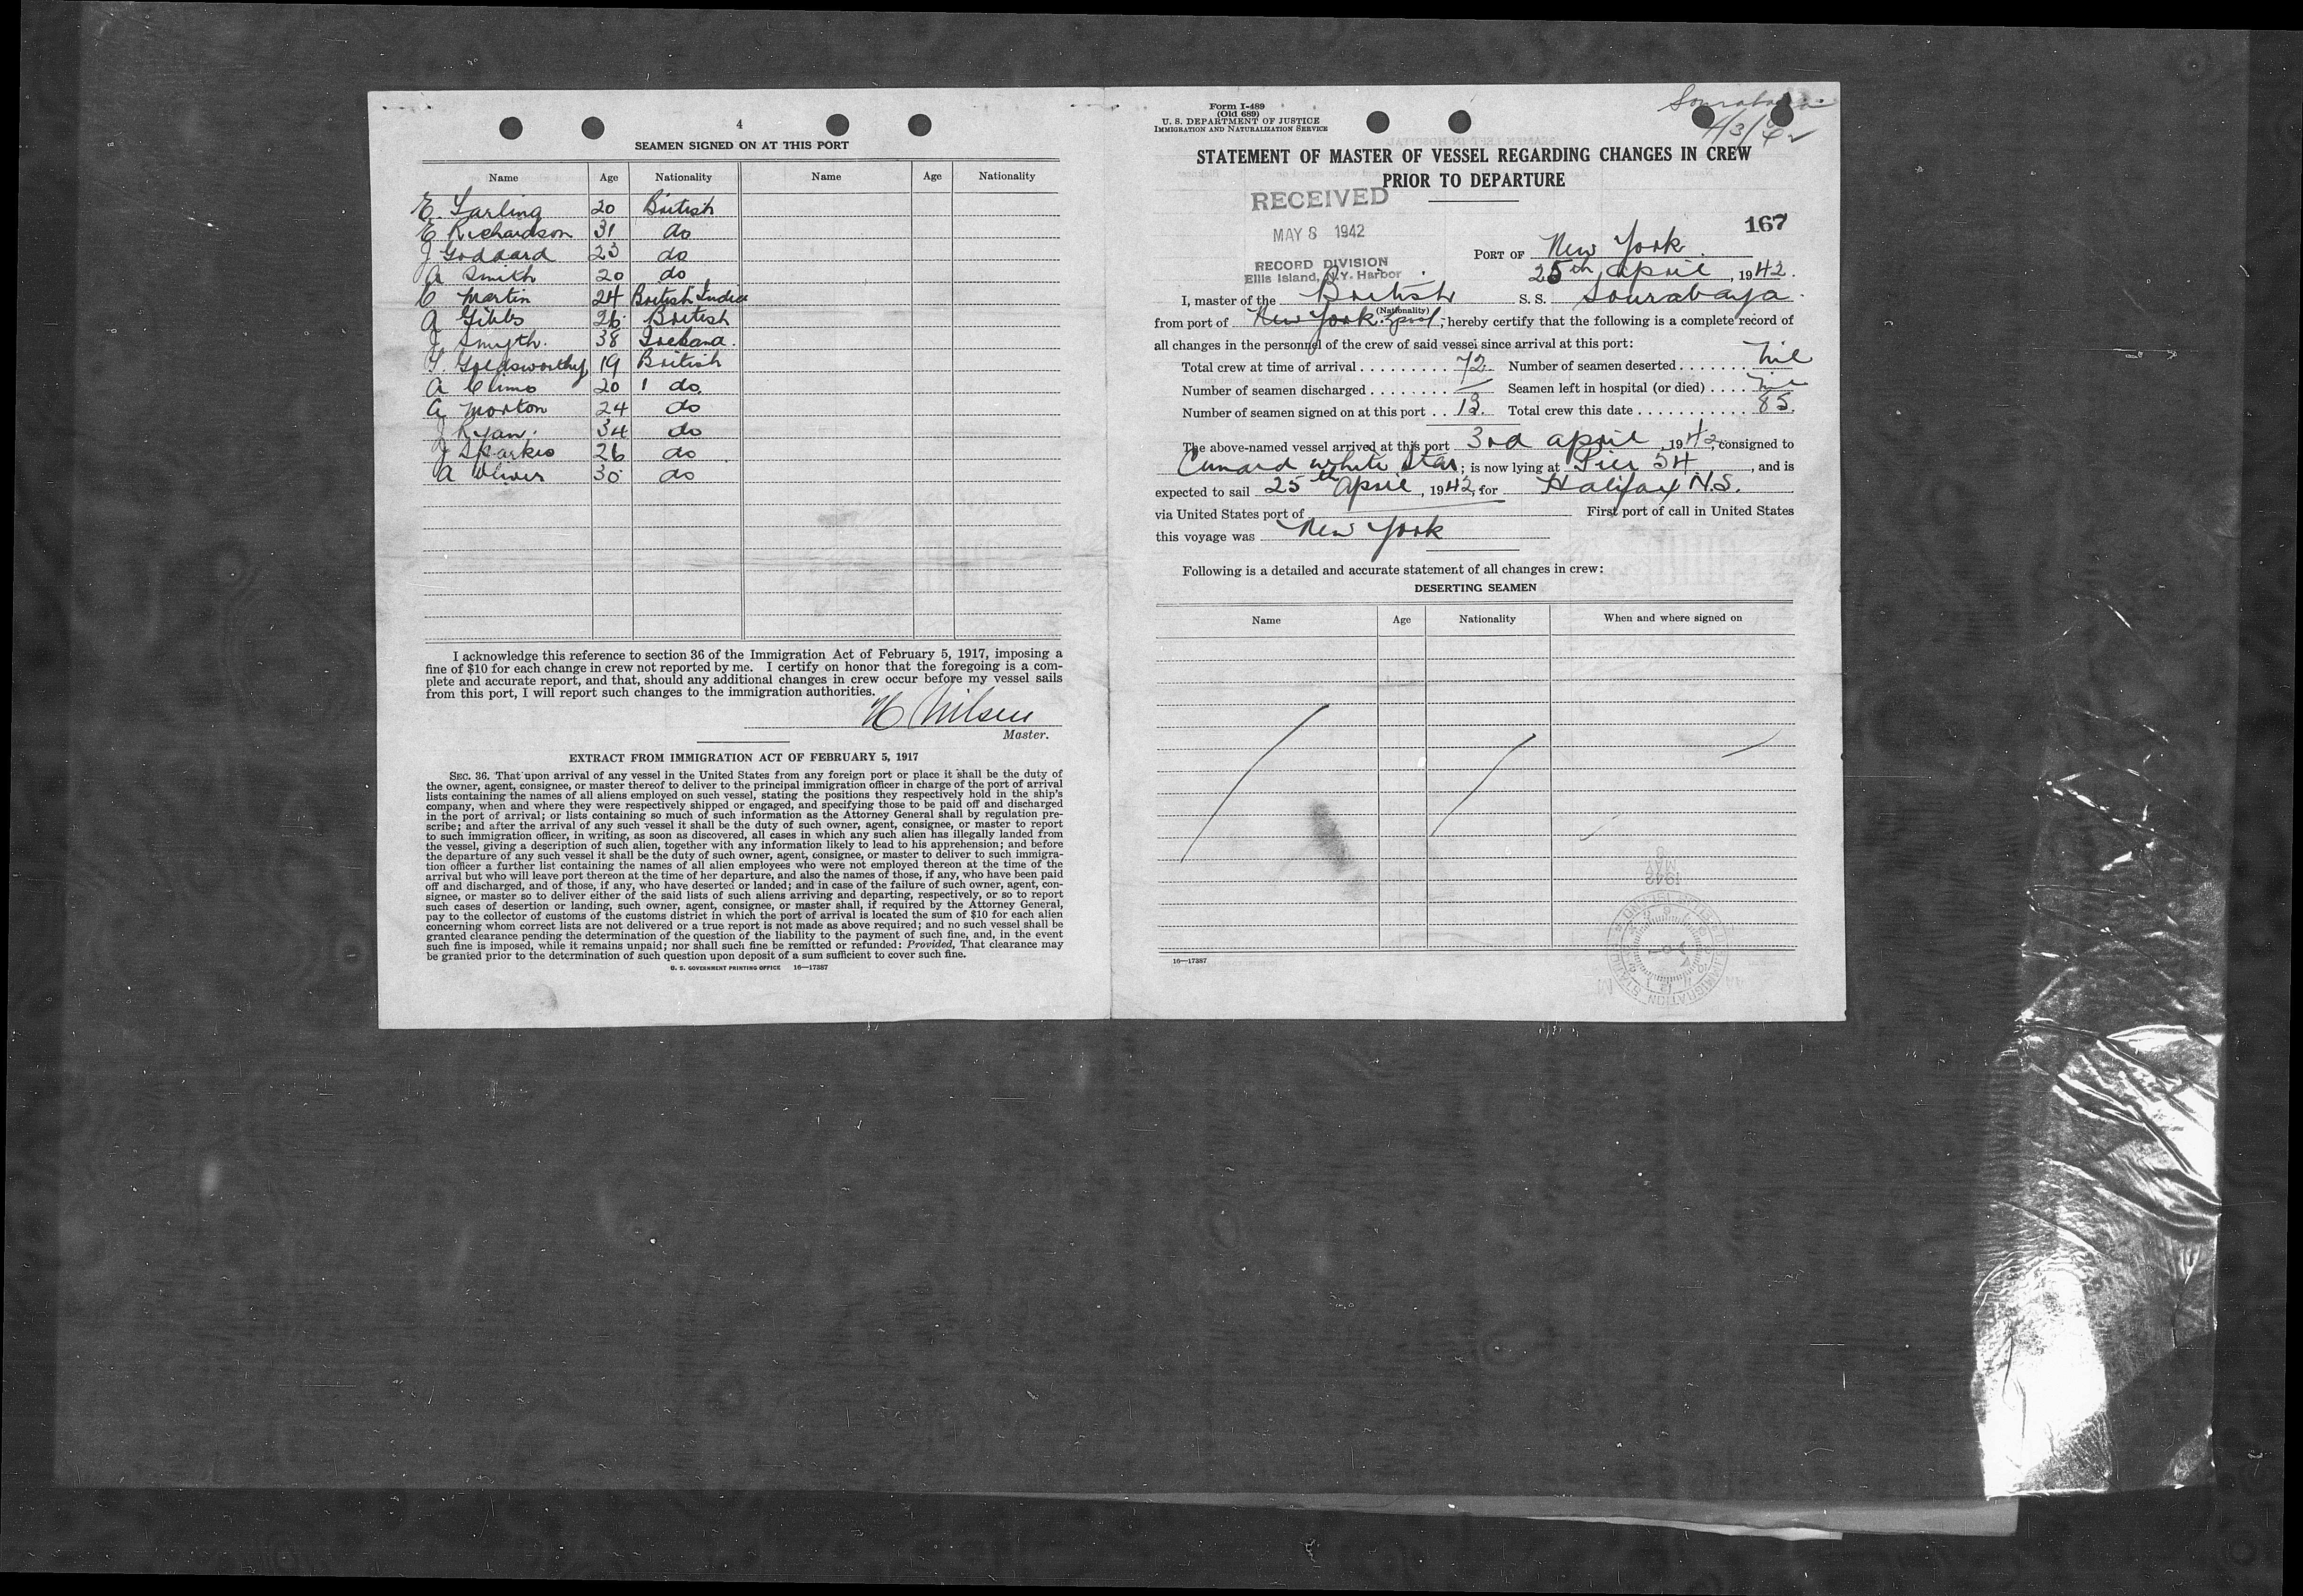 4
SEAMEN SIGNED ON AT THIS PORT
Name Age Nationality Name Age Nationality
E. Larling 20 British
E Richardson 31 do
J Goddard 23 do
A Smith 20 do
C Martin 24 British India
A Gibbs 26 British
J Smyth. 38 Ireland.
T. Goldsworthy 19 British
A Climo 20 do
G Morton 24 do
J Ryan. 34 do
J Sparkes 26 do
A Oliver 30 do
I acknowledge this reference to section 36 of the Immigration Act of February 5, 1917, imposing a
fine of $10 for each change in crew not reported by me. I certify on honor that the foregoing is a com-
plete and accurate report, and that, should any additional changes in crew occur before my vessel sails
from this port, I will report such changes to the immigration authorities.
Master.
EXTRACT FROM IMMIGRATION ACT OF FEBRUARY 5, 1917
SEC. 36. That upon arrival of any vessel in the United States from any foreign port or place it shall be the duty of
the owner, agent, consignee, or master thereof to deliver to the principal immigration officer in charge of the port of arrival
lists containing the names of all aliens employed on such vessel, stating the positions they respectively hold in the ship's
company, when and where they were respectively shipped or engaged, and specifying those to be paid off and discharged
in the port of arrival; or lists containing so much of such information as the Attorney General shall by regulation pre-
scribe; and after the arrival of any such vessel it shall be the duty of such owner, agent, consignee, or master to report
to such immigration officer, in writing, as soon as discovered, all cases in which any such alien has illegally landed from
the vessel, giving a description of such alien, together with any information likely to lead to his apprehension; and before
the departure of any such vessel it shall be the duty of such owner, agent, consignee, or master to deliver to such immigra-
tion officer a further list containing the names of all alien employees who were not employed thereon at the time of the
arrival but who will leave port thereon at the time of her departure, and also the names of those, if any, who have been paid
off and discharged, and of those, if any, who have deserted or landed; and in case of the failure of such owner, agent, con-
signee, or master so to deliver either of the said lists of such aliens arriving and departing, respectively, or so to report
such cases of desertion or landing, such owner, agent, consignee, or master shall, if required by the Attorney General,
pay to the collector of customs of the customs district in which the port of arrival is located the sum of $10 for each alien
concerning whom correct lists are not delivered or a true report is not made as above required; and no such vessel shall be
granted clearance pending the determination of the question of the liability to the payment of such fine, and, in the event
such fine is imposed, while it remains unpaid; nor shall such fine be remitted or refunded: Provided, That clearance may
be granted prior to the determination of such question upon deposit of a sum sufficient to cover such fine.
U. S. GOVERNMENT PRINTING OFFICE 16—17387
Form I-489
(Old 689)
U. S. DEPARTMENT OF JUSTICE
IMMIGRATION AND NATURALIZATION SERVICE
Sourabaya
4/3/42
STATEMENT OF MASTER OF VESSEL REGARDING CHANGES IN CREW
PRIOR TO DEPARTURE
RECEIVED
MAY 8 1942
RECORD DIVISION
Ellis Island, N.Y. Harbor
167
PORT OF New York.
25th April, 1942.
I, master of the British S. S. Sourabaya.
(Nationality)
from port of New York, hereby certify that the following is a complete record of
all changes in the personnel of the crew of said vessel since arrival at this port:
Total crew at time of arrival 72 Number of seamen deserted nil
Number of seamen discharged — Seamen left in hospital (or died) nil
Number of seamen signed on at this port 13. Total crew this date 85.
The above-named vessel arrived at this port 3rd April, 1942, consigned to
Cunard White Star; is now lying at Pier 54, and is
expected to sail 25th April, 1942, for Halifax N.S.
via United States port of First port of call in United States
this voyage was New York
Following is a detailed and accurate statement of all changes in crew:
DESERTING SEAMEN
Name Age Nationality When and where signed on
16—17387